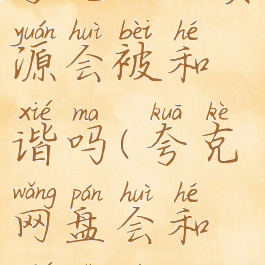 yuán huì bèi hé
源会被和
xié ma kuā kè
谐吗(夸克
wǎng pán huì hé
网盘会和